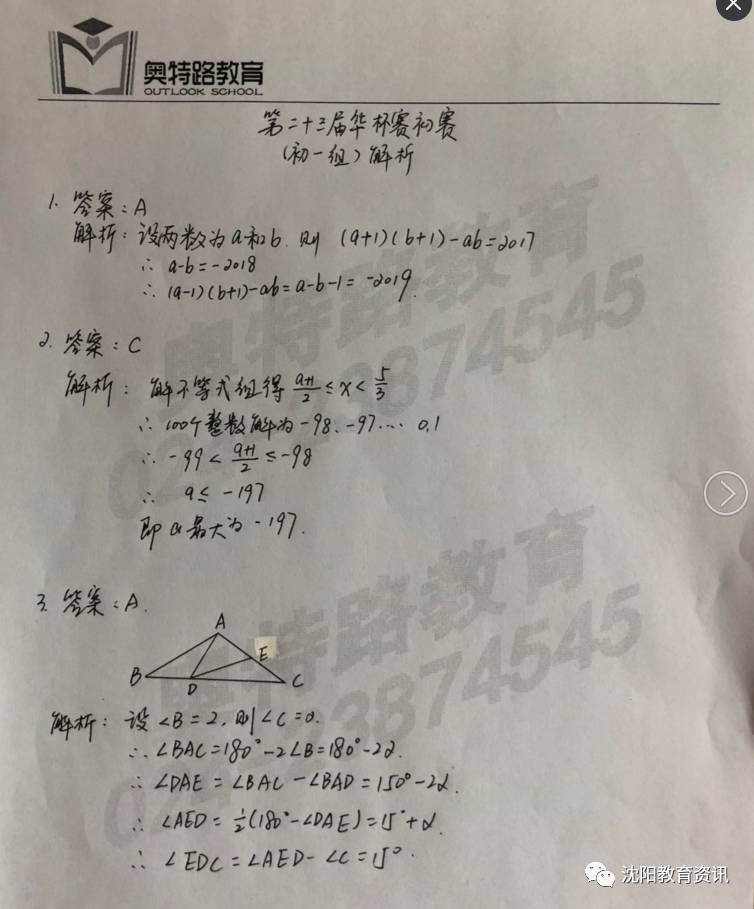 奥特路教育
OUTLOOK SCHOOL
第二十三届华杯赛初赛
(初一组)解析
1. 答案:A
解析:设两数为a和b.则 (a+1)(b+1)-ab=2017
∴ a-b=-2018
∴ (a-1)(b+1)-ab=a-b-1=-2019.
2. 答案:C
解析:解不等式组得 (a+1)/2 ≤ x < 5/3
∴ 100个整数解为-98、-97… 0.1
∴ -99 < (a+1)/2 ≤ -98
∴ a ≤ -197
即a最大为-197.
3. 答案:A.
A
E
B
D
C
解析:设∠B=2,则∠C=α.
∴ ∠BAC=180°-2∠B=180°-2α.
∴ ∠DAE=∠BAC-∠BAD=150°-2α.
∴ ∠AED=½(180°-∠DAE)=15°+α.
∴ ∠EDC=∠AED-∠C=15°.
奥特路教育
3874545
特路教育
024
3874545
沈阳教育资讯